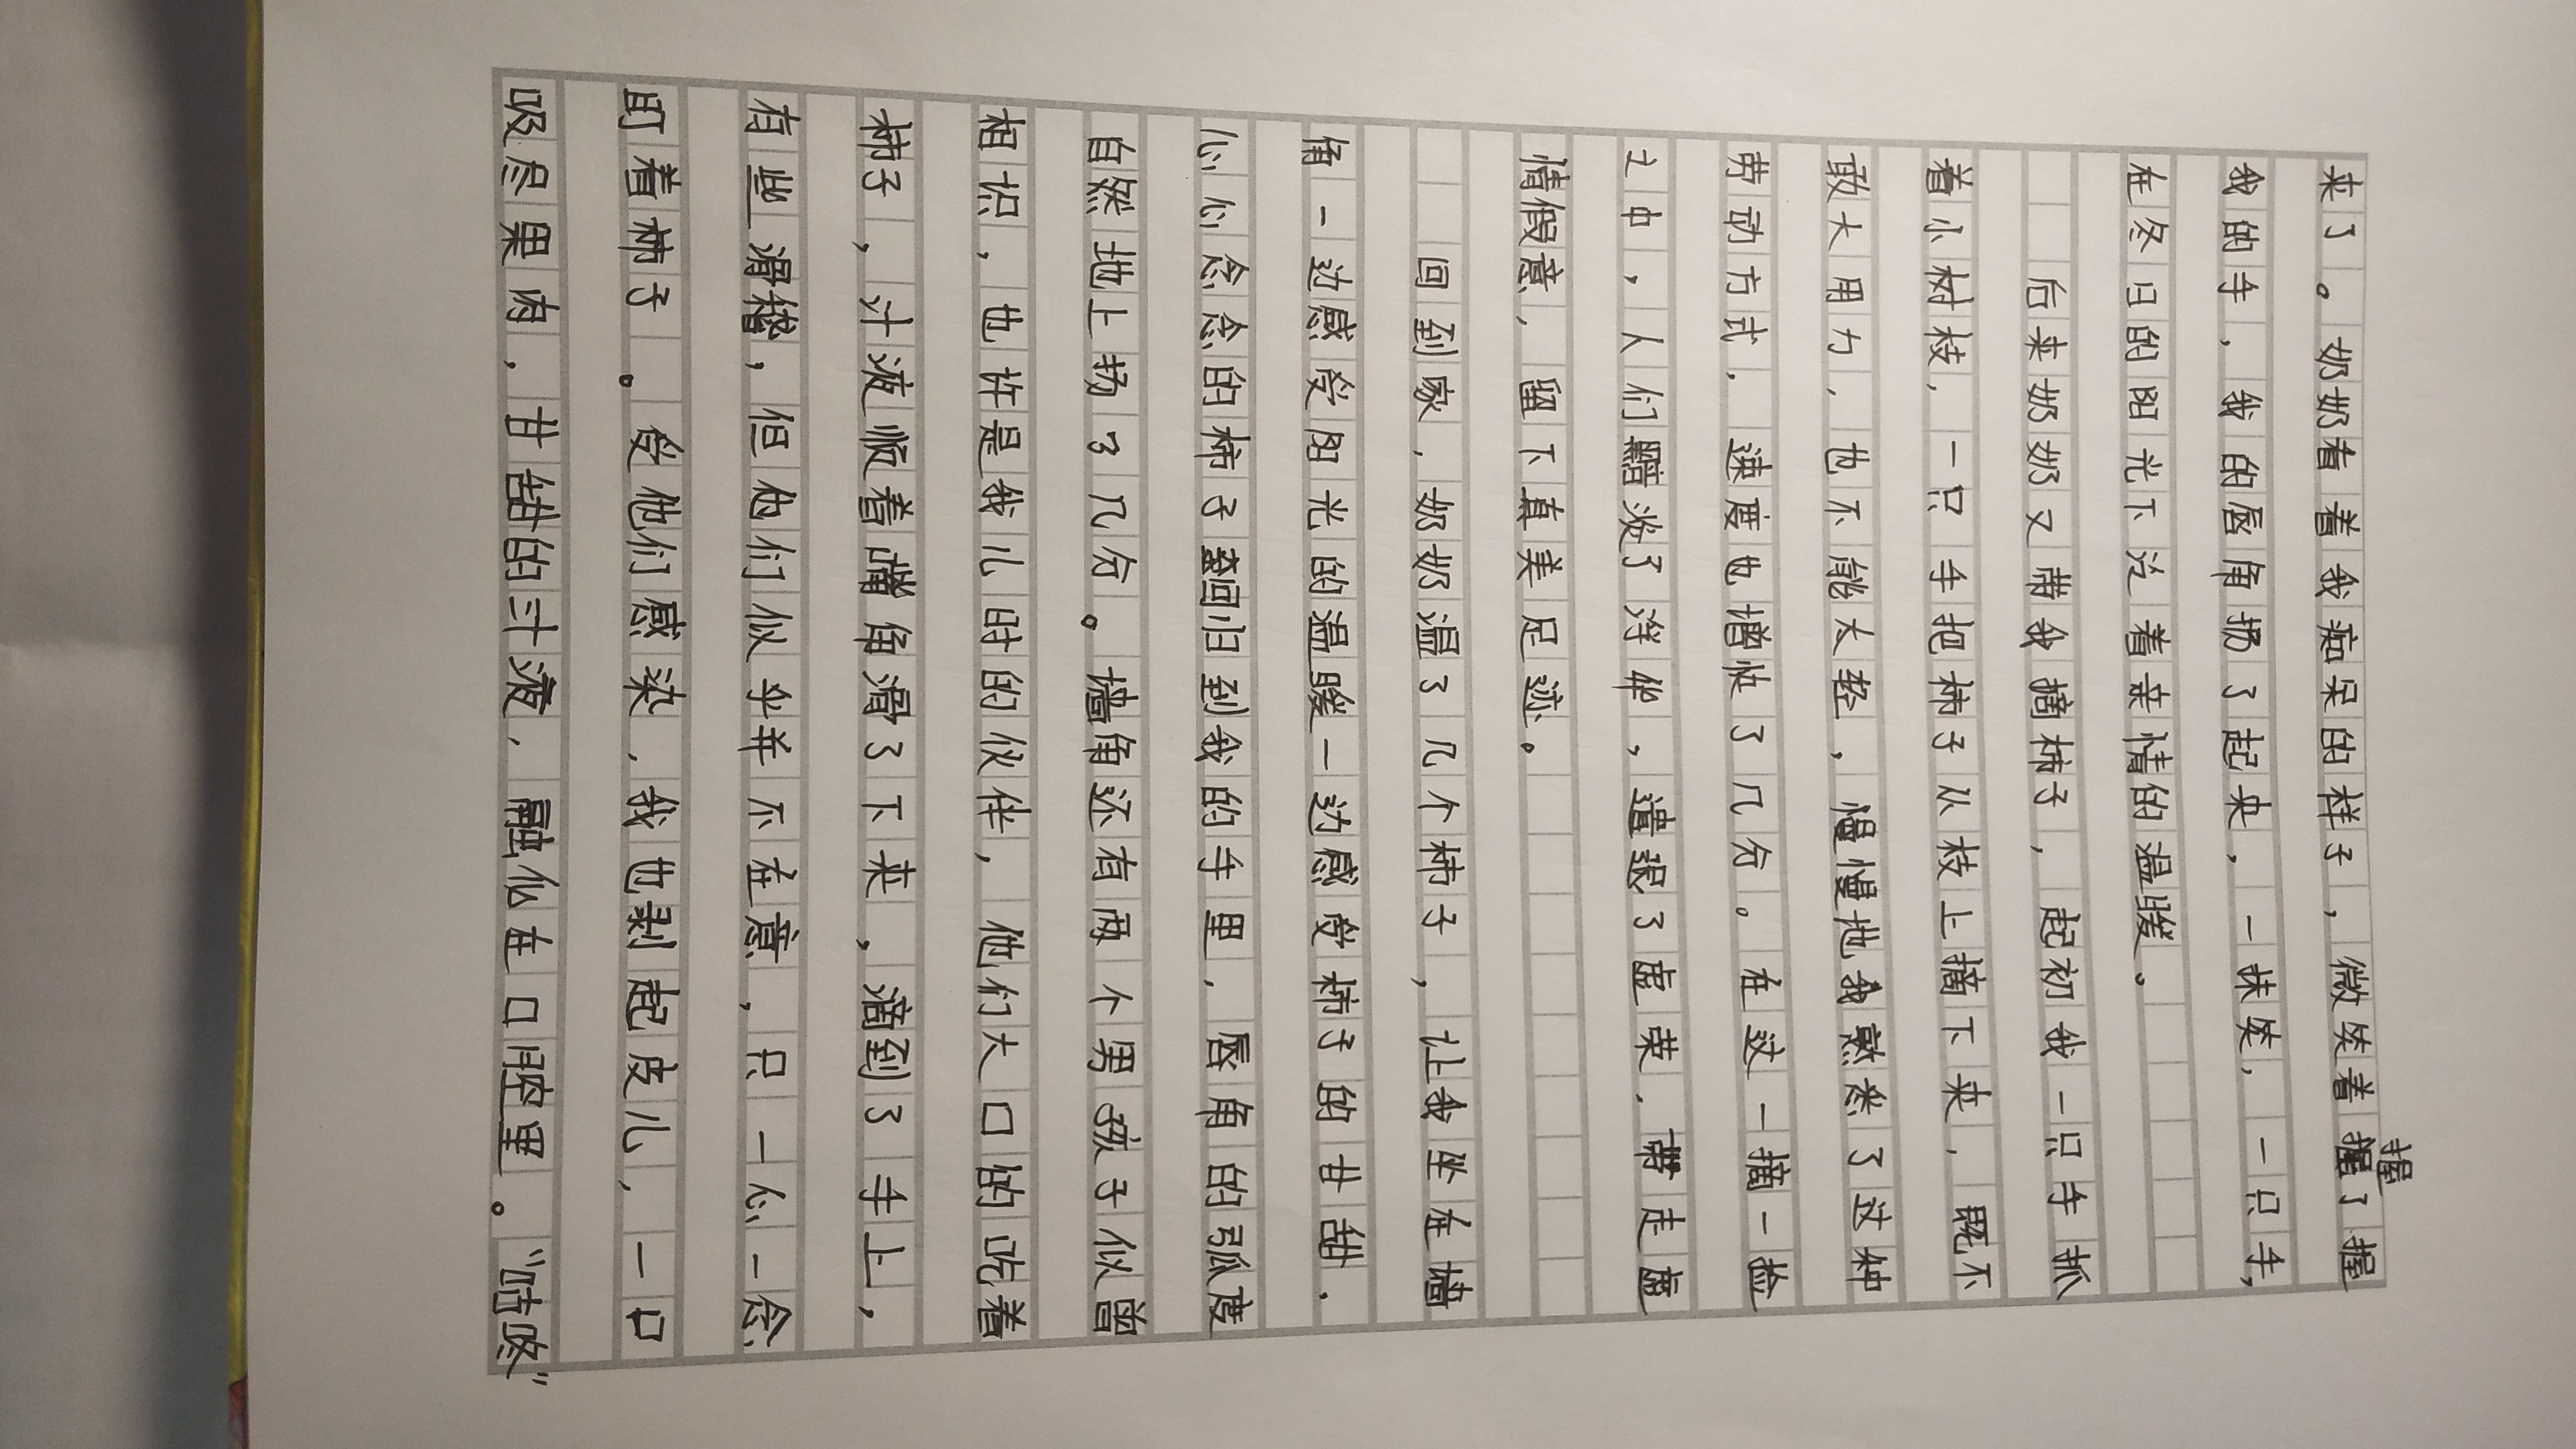 来了。奶奶看着我痴呆的样子，微笑着握了握
我的手，我的唇角扬了起来，一抹笑，一只手，
在冬日的阳光下泛着亲情的温暖。
后来奶奶又带我摘柿子，起初我一只手抓
着小树枝，一只手把柿子从枝上摘下来，既不
敢大用力，也不能太轻，慢慢地我熟悉了这种
劳动方式，速度也增快了几分。在这一摘一捡
之中，人们黯淡了浮华，遣退了虚荣，带走虚
情假意，留下真美足迹。
回到家，奶奶温了几个柿子，让我坐在墙
角一边感受阳光的温暖一边感受柿子的甘甜.
心心念念的柿子终回归到我的手里，唇角的弧度
自然地上扬了几分。墙角还有两个男孩子似曾
相识，也许是我儿时的伙伴，他们大口的吃着
柿子，汁液顺着嘴角滑了下来，滴到了手上，
有些滑稽，但他们似乎并不在意，只一心一念
盯着柿子。受他们感染，我也剥起皮儿，一口
吸尽果肉，甘甜的汁液，融化在口腔里。“咕咚”